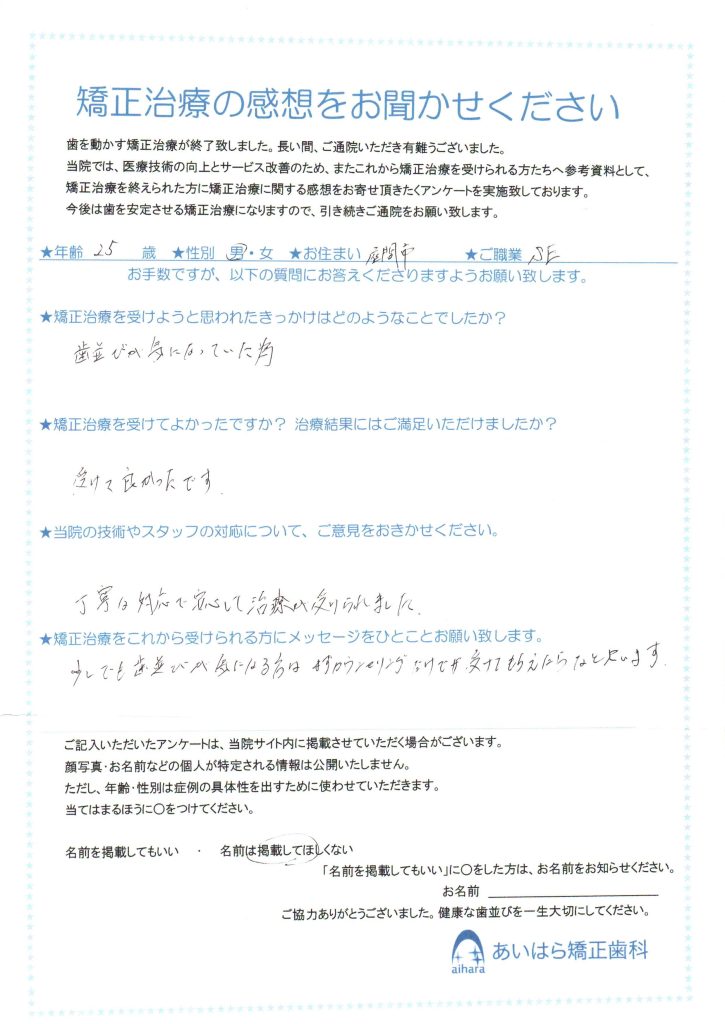 矯正治療の感想をお聞かせください
歯を動かす矯正治療が終了致しました。長い間、ご通院いただき有難うございました。
当院では、医療技術の向上とサービス改善のため、またこれから矯正治療を受けられる方たちへ参考資料として、
矯正治療を終えられた方に矯正治療に関する感想をお寄せ頂きたくアンケートを実施致しております。
今後は歯を安定させる矯正治療になりますので、引き続きご通院をお願い致します。
★年齢 25 歳 ★性別 男・女 ★お住まい 座間市 ★ご職業 SE
お手数ですが、以下の質問にお答えくださりますようお願い致します。
★矯正治療を受けようと思われたきっかけはどのようなことでしたか?
歯並びが気になっていた為
★矯正治療を受けてよかったですか? 治療結果にはご満足いただけましたか?
受けて良かったです.
★当院の技術やスタッフの対応について、ご意見をおきかせください。
丁寧な対応で安心して治療が受けられました.
★矯正治療をこれから受けられる方にメッセージをひとことお願い致します。
少しでも歯並びが気になる方は まずカウンセリングだけでも 受けてもらえたらなと思います.
ご記入いただいたアンケートは、当院サイト内に掲載させていただく場合がございます。
顔写真・お名前などの個人が特定される情報は公開いたしません。
ただし、年齢・性別は症例の具体性を出すために使わせていただきます。
当てはまるほうに〇をつけてください。
名前を掲載してもいい ・ 名前は掲載してほしくない
「名前を掲載してもいい」に〇をした方は、お名前をお知らせください。
お名前
ご協力ありがとうございました。健康な歯並びを一生大切にしてください。
aihara あいはら矯正歯科